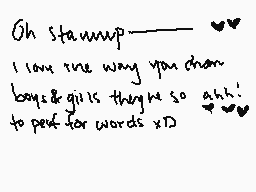 Oh stawwp ♥♥
I love the way you draw
boys & girls they're so ahh!
to perf for words xD ♥♥♥